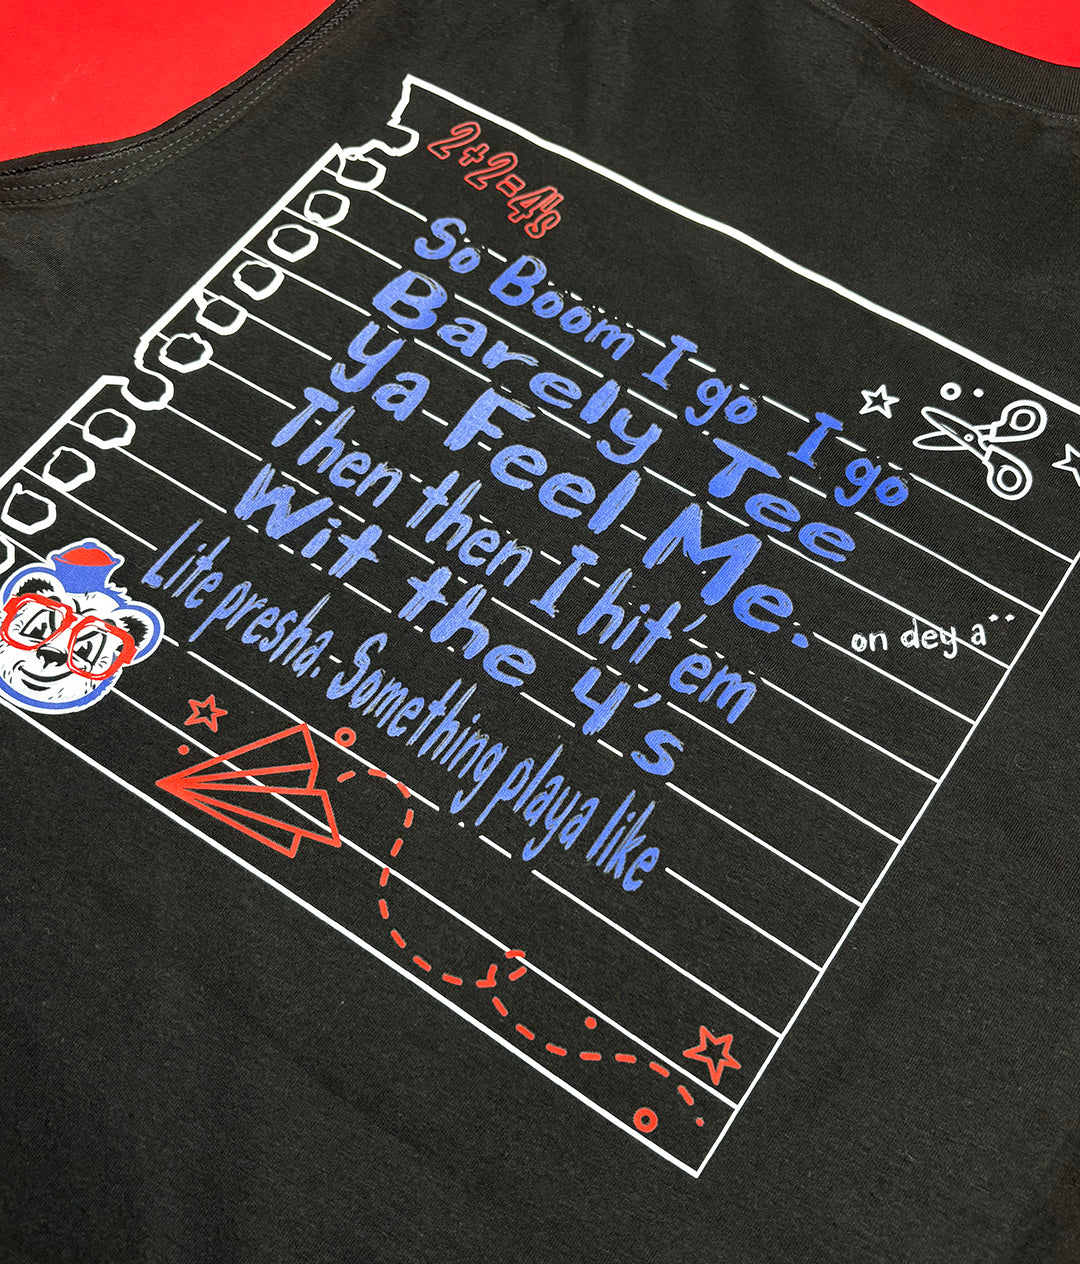 2+2=4's
So Boom I go I go
Barely Tee
Ya Feel Me.
on dey a¨
Then then I hit' em
Wit the 4's
Lite presha. Something playa like